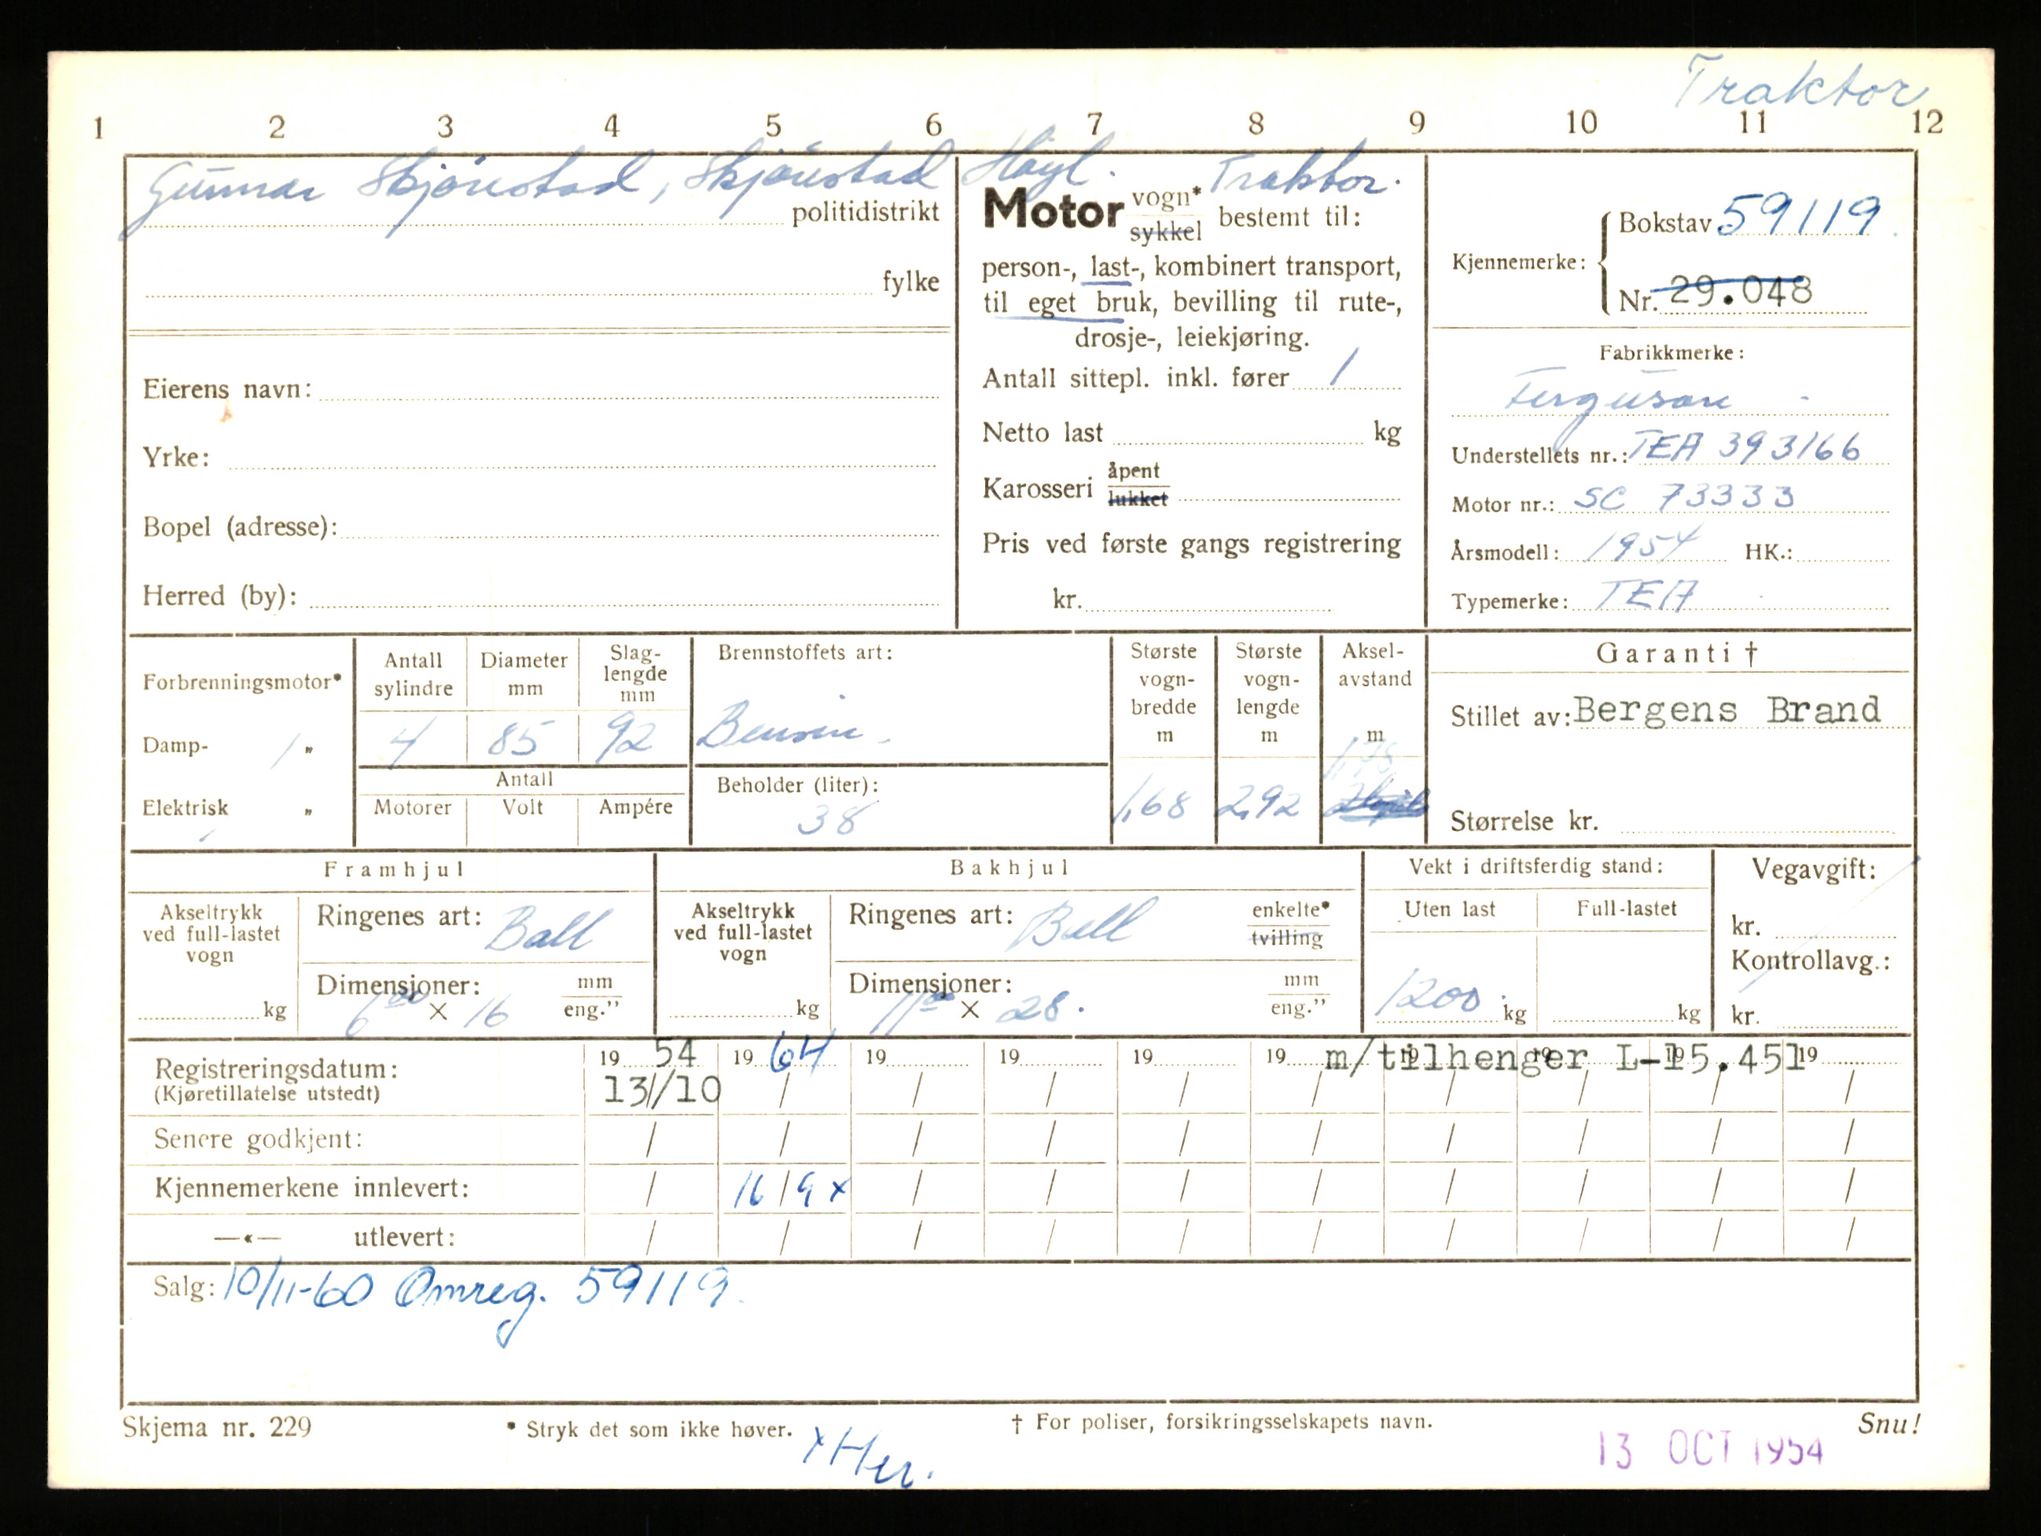 Traktor
1 2 3 4 5 6 7 8 9 10 11 12
Gunnar Skjørestad, Skjørestad Høyl. Traktor.
politidistrikt
fylke
Eierens navn:
Yrke:
Bopel (adresse):
Herred (by):
Motor vogn* sykkel bestemt til:
person-, last-, kombinert transport,
til eget bruk, bevilling til rute-,
drosje-, leiekjøring.
Antall sittepl. inkl. fører 1
Netto last kg
Karosseri åpent lukket
Pris ved første gangs registrering
kr.
Kjennemerke: Bokstav 59119.
Nr. 29.048
Fabrikkmerke:
Ferguson
Understellets nr.: TEA 393166
Motor nr.: SC 73333
Årsmodell: 1954 HK.:
Typemerke: TEA
Forbrenningsmotor*
Damp- "
Elektrisk "
Antall sylindre Diameter mm Slag-lengde mm
4 85 92
Antall
Motorer Volt Ampére
Brennstoffets art:
Bensin
Beholder (liter):
38
Største vogn-bredde m
1,68
Største vogn-lengde m
2,92
Aksel-avstand m
1,78
Garanti †
Stillet av: Bergens Brand
Størrelse kr.
Framhjul
Akseltrykk ved full-lastet vogn
kg
Ringenes art: Ball
Dimensjoner: mm eng."
6⁰⁰ × 16
Bakhjul
Akseltrykk ved full-lastet vogn
kg
Ringenes art: Ball enkelte* tvilling
Dimensjoner: mm eng."
11⁰⁰ × 28.
Vekt i driftsferdig stand:
Uten last Full-lastet
1200 kg kg
Vegavgift:
kr.
Kontrollavg.:
kr.
Registreringsdatum: 19 54 19 64 19 19 19 19 19 19 19 19
m/tilhenger L-15.451
(Kjøretillatelse utstedt) 13/10 / / / / / / / / /
Senere godkjent: / / / / / / / / / /
Kjennemerkene innlevert: / 16/9 x / / / / / / / /
—«— utlevert: / / / / / / / / / /
Salg: 10/11-60 Omreg. 59119.
Skjema nr. 229
* Stryk det som ikke høver.
† For poliser, forsikringsselskapets navn.
Snu!
x Her.
13 OCT 1954